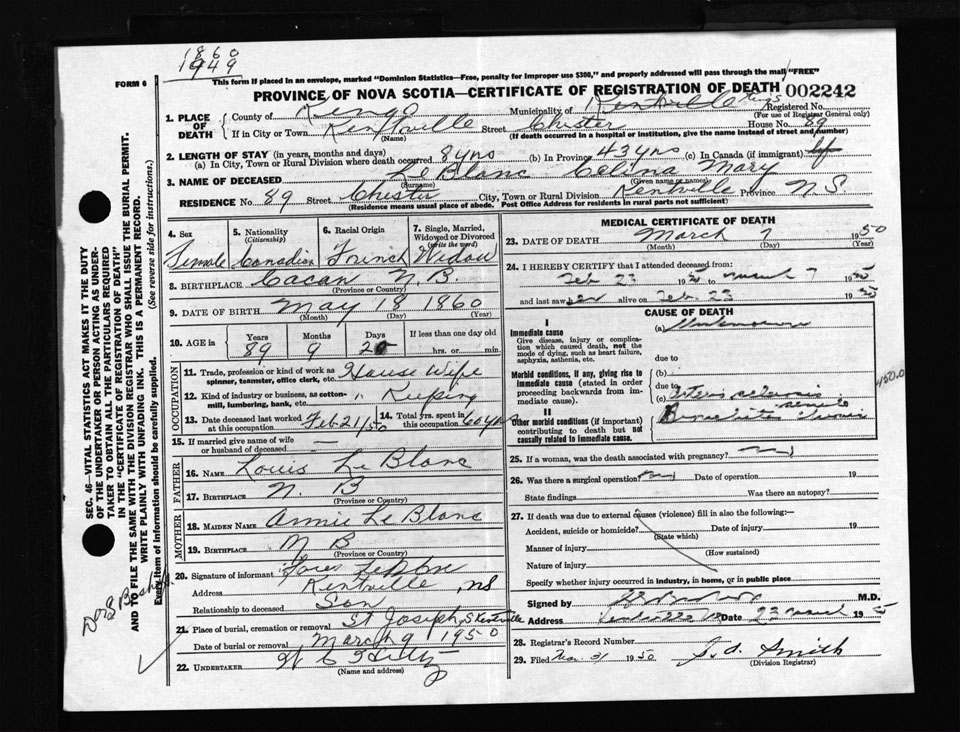 1860
1949
FORM 6
This form if placed in an envelope, marked "Dominion Statistics—Free, penalty for improper use $300," and properly addressed will pass through the mail "FREE"
PROVINCE OF NOVA SCOTIA—CERTIFICATE OF REGISTRATION OF DEATH 002242
1. PLACE OF DEATH
County of Kings Municipality of Kentville Kings Registered No.
(For use of Registrar General only)
If in City or Town Kentville Street Chester House No. 89
(Name) (If death occurred in a hospital or institution, give the name instead of street and number)
2. LENGTH OF STAY (in years, months and days)
(a) In City, Town or Rural Division where death occurred 8 yrs (b) In Province 43 yrs (c) In Canada (if immigrant)
3. NAME OF DECEASED Le Blanc Celina Mary
(Surname) (Given name or names)
RESIDENCE No. 89 Street Chester City, Town or Rural Division Kentville Province N.S
(Residence means usual place of abode. Post Office Address for residents in rural parts not sufficient)
4. Sex 5. Nationality (Citizenship) 6. Racial Origin 7. Single, Married, Widowed or Divorced (write the word)
Female Canadian French Widow
8. BIRTHPLACE Cacan N.B.
(Province or Country)
9. DATE OF BIRTH May 18 1860
(Month) (Day) (Year)
10. AGE in Years Months Days If less than one day old
89 9 20 hrs. or min.
OCCUPATION
11. Trade, profession or kind of work as spinner, teamster, office clerk, etc. House Wife
12. Kind of industry or business, as cotton-mill, lumbering, bank, etc. " Keeping
13. Date deceased last worked at this occupation Feb 21/50 14. Total yrs. spent in this occupation 60 yrs
15. If married give name of wife or husband of deceased —
FATHER
16. NAME Louis Le Blanc
17. BIRTHPLACE N. B
(Province or Country)
MOTHER
18. MAIDEN NAME Annie Le Blanc
19. BIRTHPLACE N B
(Province or Country)
20. Signature of informant
Address Kentville, NS
Relationship to deceased Son
21. Place of burial, cremation or removal St Joseph, S Kentville
Date of burial or removal March 9 1950
22. UNDERTAKER
(Name and address)
MEDICAL CERTIFICATE OF DEATH
23. DATE OF DEATH March 7 1950
(Month) (Day) (Year)
24. I HEREBY CERTIFY that I attended deceased from:
Feb 23 1950 to March 7 1950
and last saw her alive on Feb. 23 1950
CAUSE OF DEATH
I
Immediate cause
Give disease, injury or complication which caused death, not the mode of dying, such as heart failure, asphyxia, asthenia, etc.
(a)
due to
Morbid conditions, if any, giving rise to immediate cause (stated in order proceeding backwards from immediate cause).
(b)
due to
(c)
450.0
II
Other morbid conditions (if important) contributing to death but not causally related to immediate cause.
25. If a woman, was the death associated with pregnancy?
26. Was there a surgical operation? Date of operation 19
State findings Was there an autopsy?
27. If death was due to external causes (violence) fill in also the following:—
Accident, suicide or homicide? Date of injury 19
(State which)
Manner of injury
(How sustained)
Nature of injury
Specify whether injury occurred in industry, in home, or in public place
Signed by M.D.
Address Date 23 March 1950
28. Registrar's Record Number
29. Filed Mar. 31 1950 S.d. Smith
(Division Registrar)
SEC. 46—VITAL STATISTICS ACT MAKES IT THE DUTY
OF THE UNDERTAKER OR PERSON ACTING AS UNDER-
TAKER TO OBTAIN ALL THE PARTICULARS REQUIRED
IN THE "CERTIFICATE OF REGISTRATION OF DEATH"
AND TO FILE THE SAME WITH THE DIVISION REGISTRAR WHO SHALL ISSUE THE BURIAL PERMIT.
WRITE PLAINLY WITH UNFADING INK. THIS IS A PERMANENT RECORD.
Every item of information should be carefully supplied. (See reverse side for instructions.)